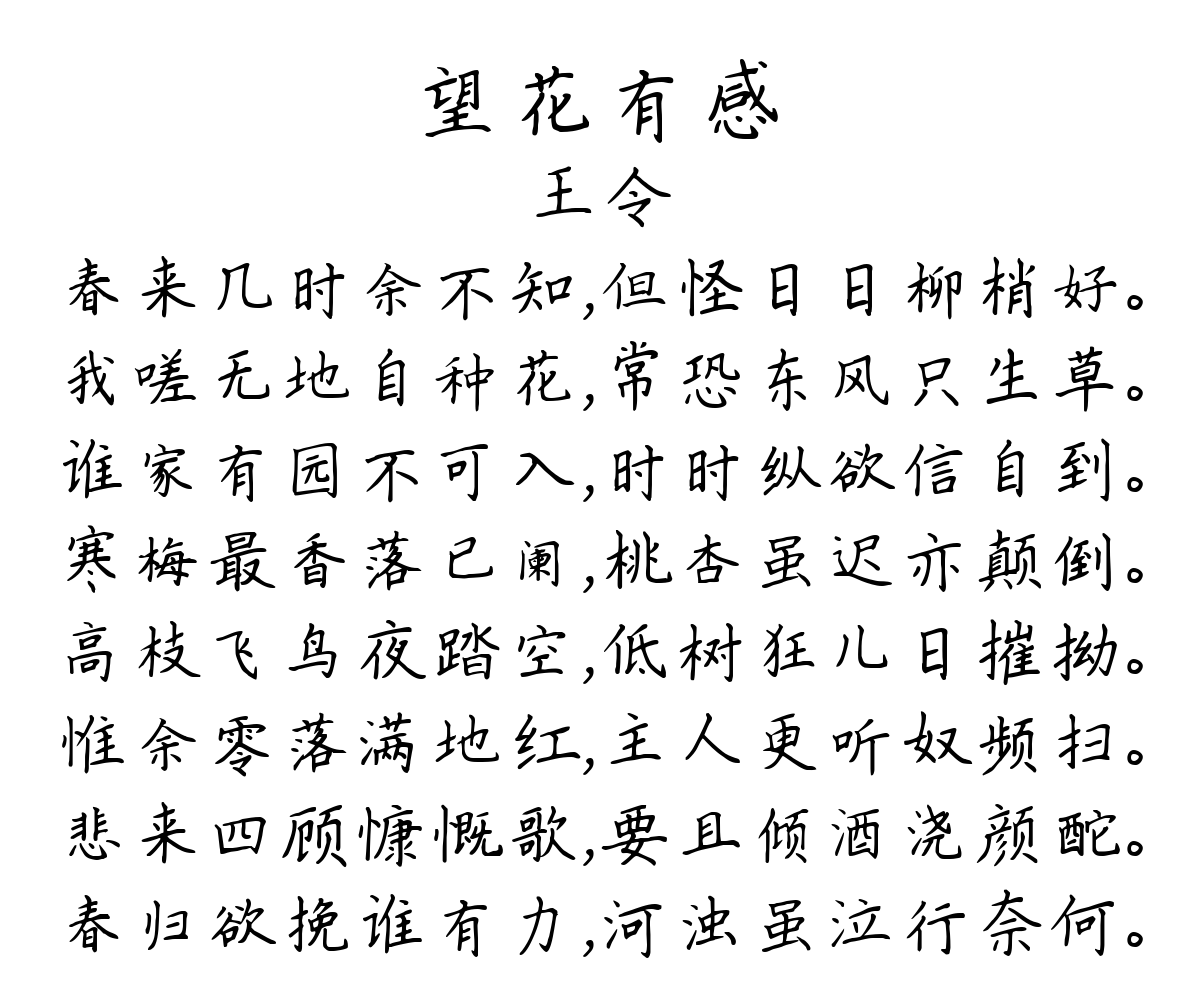 望花有感
王令
春来几时余不知,但怪日日柳梢好。
我嗟无地自种花,常恐东风只生草。
谁家有园不可入,时时纵欲信自到。
寒梅最香落已阑,桃杏虽迟亦颠倒。
高枝飞鸟夜踏空,低树狂儿日摧拗。
惟余零落满地红,主人更听奴频扫。
悲来四顾慷慨歌,要且倾酒浇颜酡。
春归欲挽谁有力,河浊虽泣行奈何。